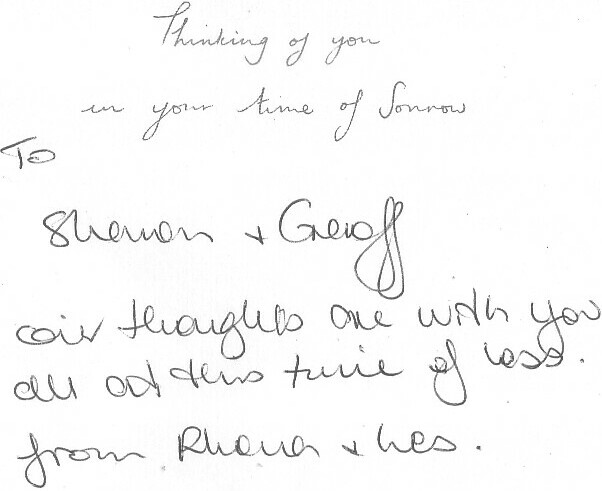 Thinking of you
in your time of Sorrow
To
Sharon + Geoff
our thoughts are with you
all at this time of loss.
from Rhona + Les.